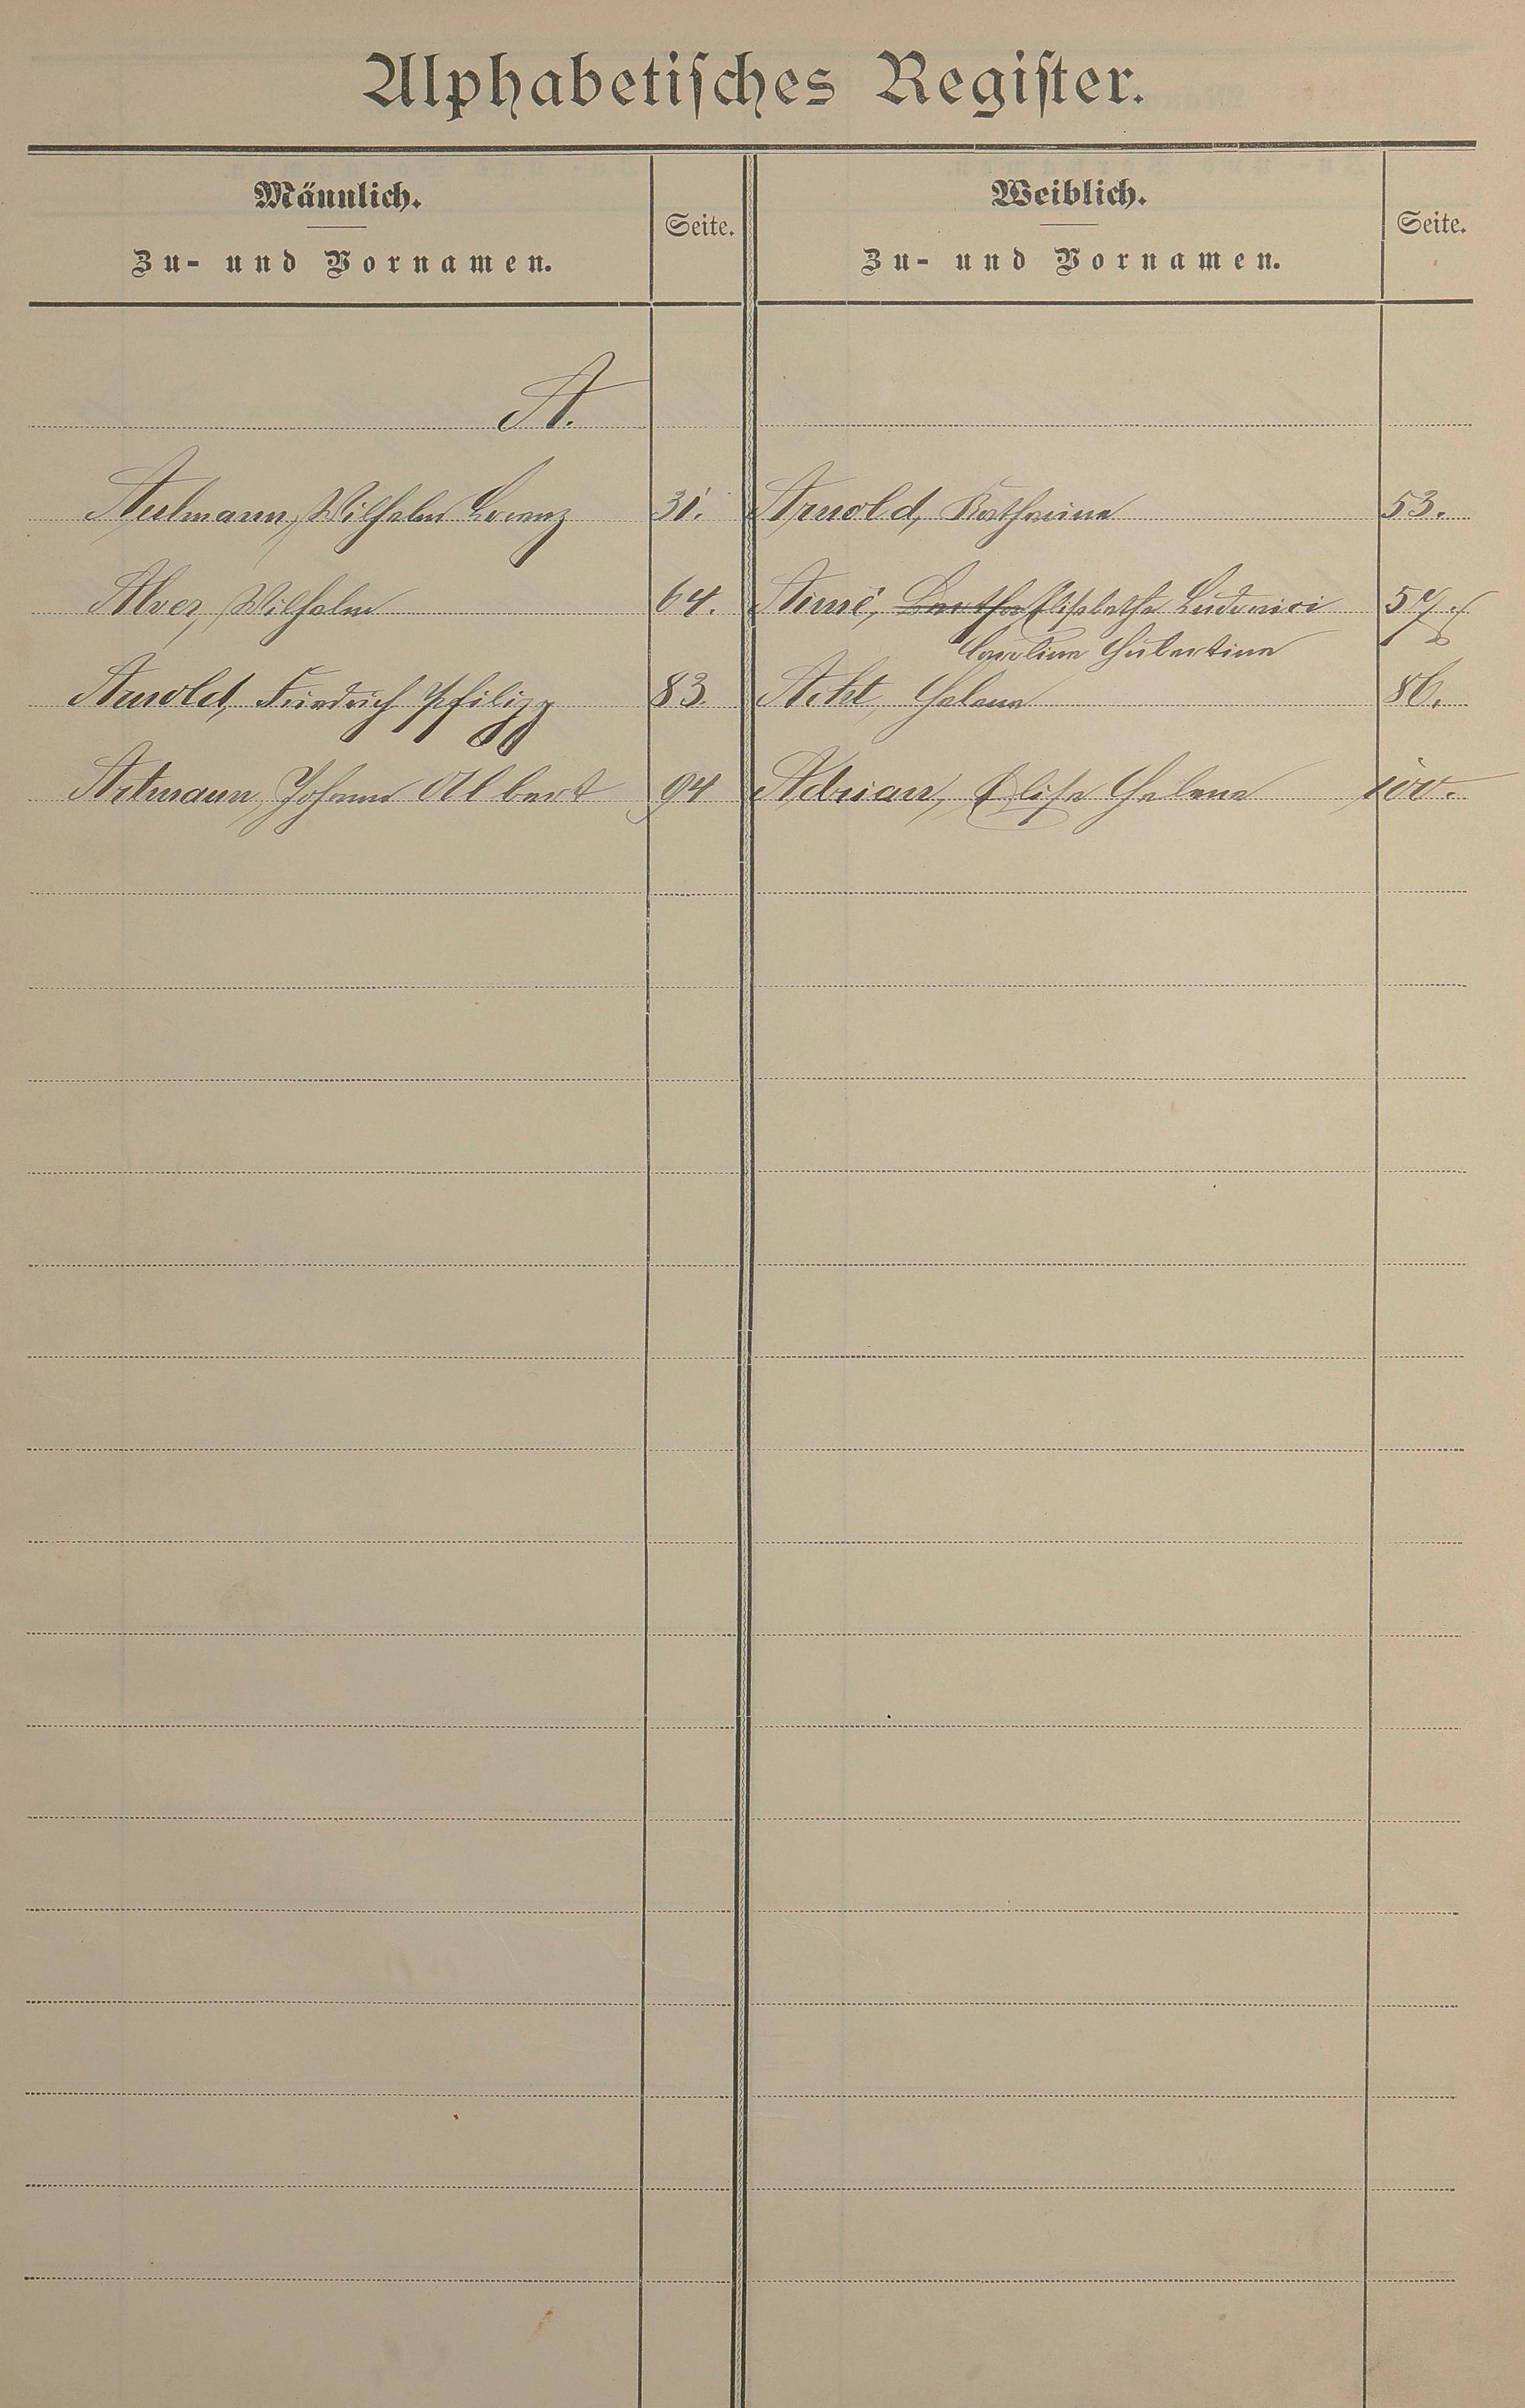 Alphabetisches Register.
Männlich.
Zu- und Vornamen.
Seite.
Weiblich.
Zu- und Vornamen.
Seite.
A.
Aulmann, Wilhelm Lorenz 31. Arnold, Katharina 53.
Alver, Wilhelm 64. Aimé, Bertha Elisabetha Ludovici 57.
Carolina Hubertina
Arnold, Friedrich Philipp 83. Acht, Helena 86.
Artmann, Johann Albert 94 Adrian, Elisa Helena 100.